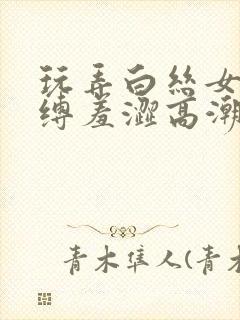 玩弄白丝女
缚羞涩高潮
青木隼人(青木